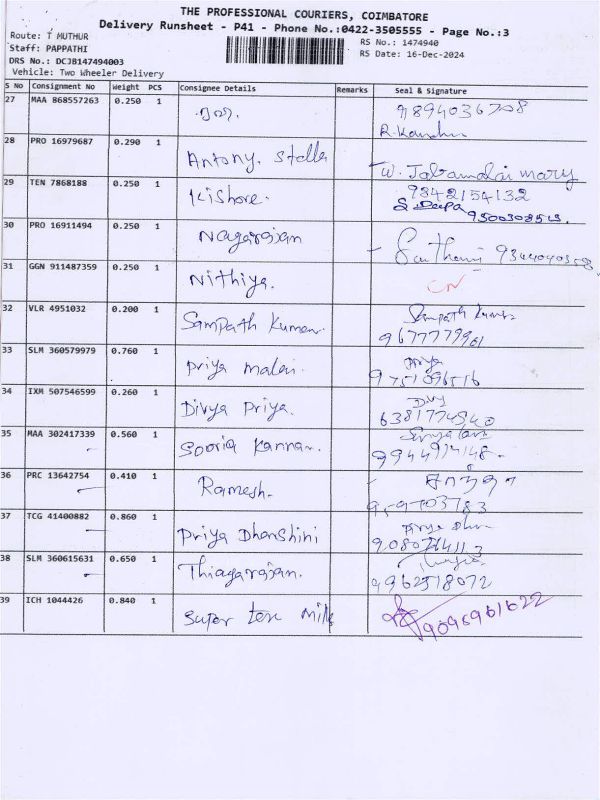 THE PROFESSIONAL COURIERS, COIMBATORE
Delivery Runsheet - P41 - Phone No.:0422-3505555 - Page No.:3
Route: T MUTHUR
RS No.: 1474940
Staff: PAPPATHI
RS Date: 16-Dec-2024
DRS No.: DCJB147494003
Vehicle: Two Wheeler Delivery
S No Consignment No Weight PCS Consignee Details Remarks Seal & Signature
27 MAA 868557263 0.250 1 9894036708
28 PRO 16979687 0.290 1 Antony. Stella
29 TEN 7868188 0.250 1 Kishore. 9842154132
30 PRO 16911494 0.250 1 Nagarajan
31 GGN 911487359 0.250 1 Nithiya.
32 VLR 4951032 0.200 1 Sampath Kumar. Sampath Kumar
33 SLM 360579979 0.760 1 Priya malai. Priya
9751096516
34 IXM 507546599 0.260 1 Divya Priya. Divy
35 MAA 302417339 0.560 1 Sooria Kannan.
36 PRC 13642754 0.410 1 Ramesh.
37 TCG 41400882 0.860 1 Priya Dhanshini
38 SLM 360615631 0.650 1 Thiagarajan.
9962518072
39 ICH 1044426 0.840 1 Super ten Milk